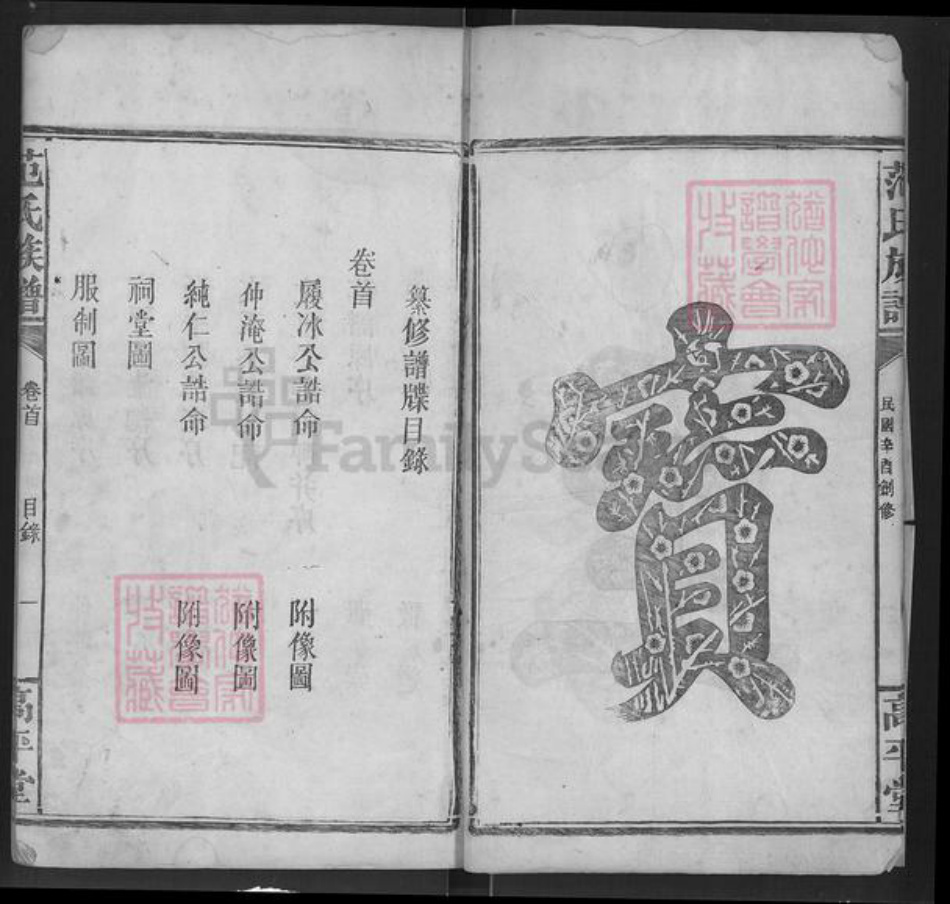 范氏族譜
民國辛酉創修
高平堂
寶
猶他家譜學會收藏
纂修譜牒目錄
卷首
履冰公誥命 附像圖
仲淹公誥命 附像圖
純仁公誥命 附像圖
祠堂圖
服制圖
猶他家譜學會收藏
范氏族譜
卷首
目錄
一
高平堂
FamilySearch